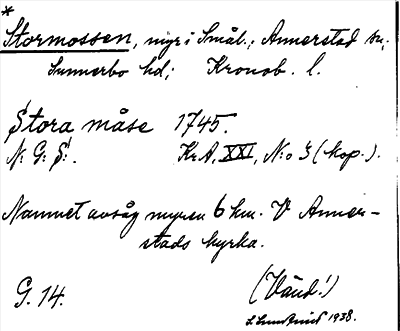 *
Stormossen, myr i Smål.; Annerstad sn,
Sunnerbo hd; Kronob. l.
Stora måse 1745.
N: G: S:. Kr. A, XXI, N:o 3 (kop.).
Namnet avsåg myren 6 km. V Anner-
stads kyrka.
G. 14. (Vänd!)
1938.